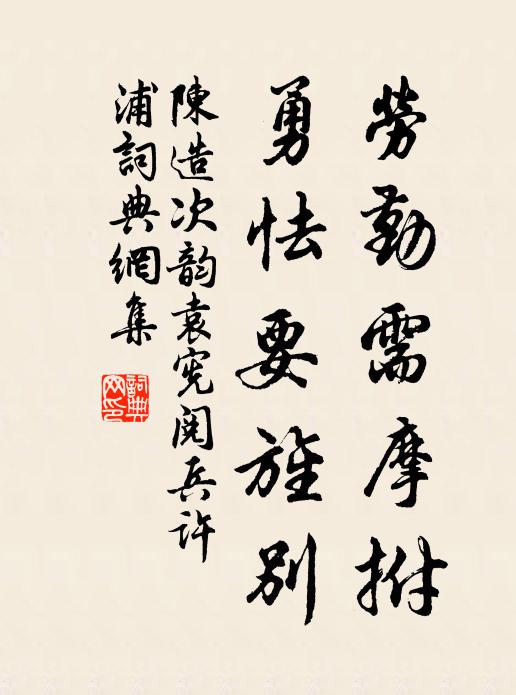 勞勤需摩拊
勇怯要旌別
陳造次韵袁宪閱兵許
浦詞典網集
詞典网印